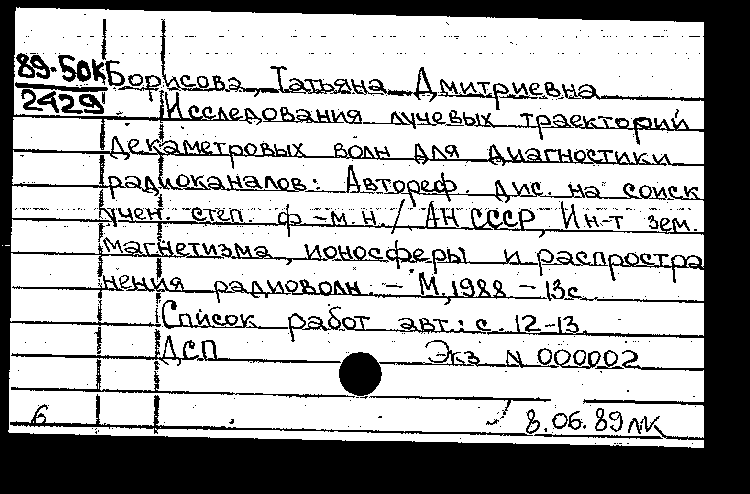 89-50К Борисова, Татьяна Дмитриевна
2429 Исследования лучевых траекторий
декаметровых волн для диагностики
радиоканалов: Автореф. дис. на соиск
учен. степ. ф.-м.н. / АН СССР, Ин-т зем.
магнетизма, ионосферы и распростра
нения радиоволн. - М., 1988 - 13с.
Список работ авт.: с. 12-13.
ДСП Экз N 000002
6 8.06.89 лк